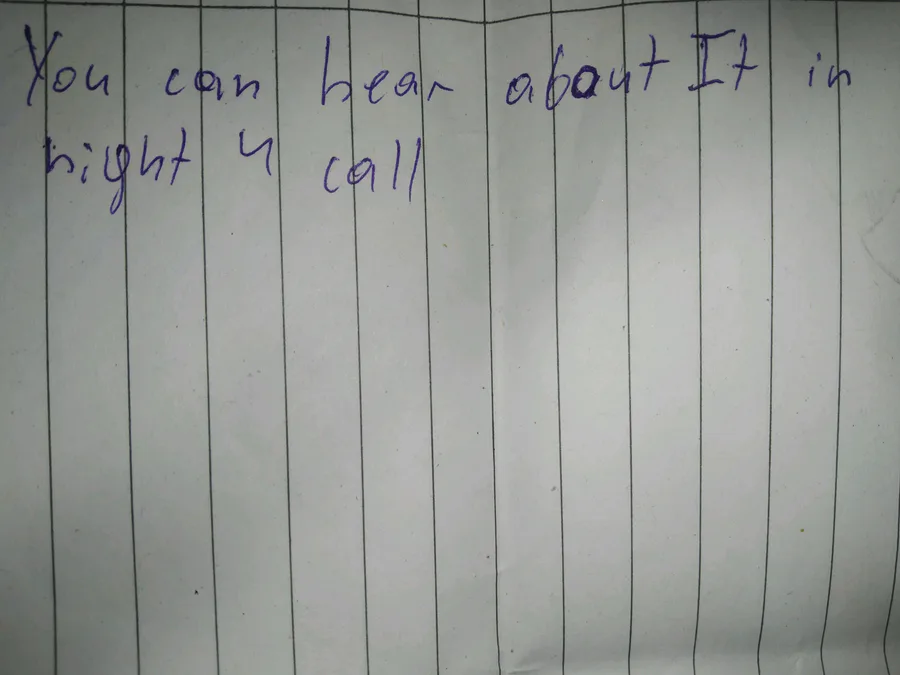 You can hear about It in
night 4 call